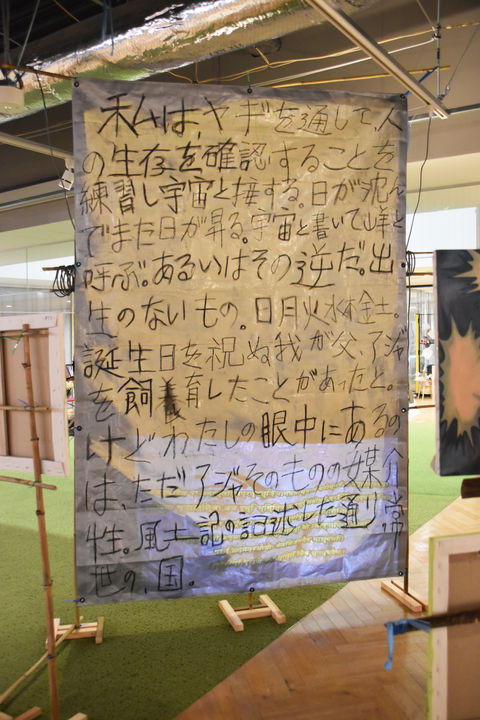 私は、ヤギを通して、人
の生存を確認することを
練習し宇宙と接する。日が沈ん
でまた日が昇る。宇宙と書いて山羊と
呼ぶ。あるいはその逆だ。出
生のないもの。日月火水木金土。
誕生日を祝ぬ我が父、アジャ
を飼養育したことがあったと。
けどわたしの眼中にあるの
は、ただアジャそのものの媒介
性。風土記の記述した通り、常
世の、国。